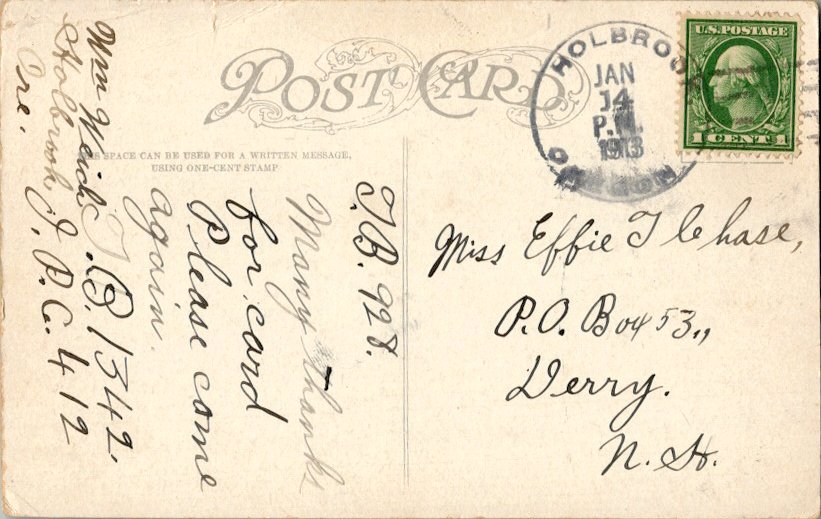 POST CARD
THIS SPACE CAN BE USED FOR A WRITTEN MESSAGE,
USING ONE-CENT STAMP
HOLBROOK
JAN
14
P.M.
1913
OREGON
U.S. POSTAGE
1 CENT 1
T.B. 928.
Many thanks
for card
Please come
again.
T.B. 1342.
Wm
Holbrook J.P.C. 412
Ore.
Miss Effie T Chase,
P.O. Box 53.,
Derry.
N.H.